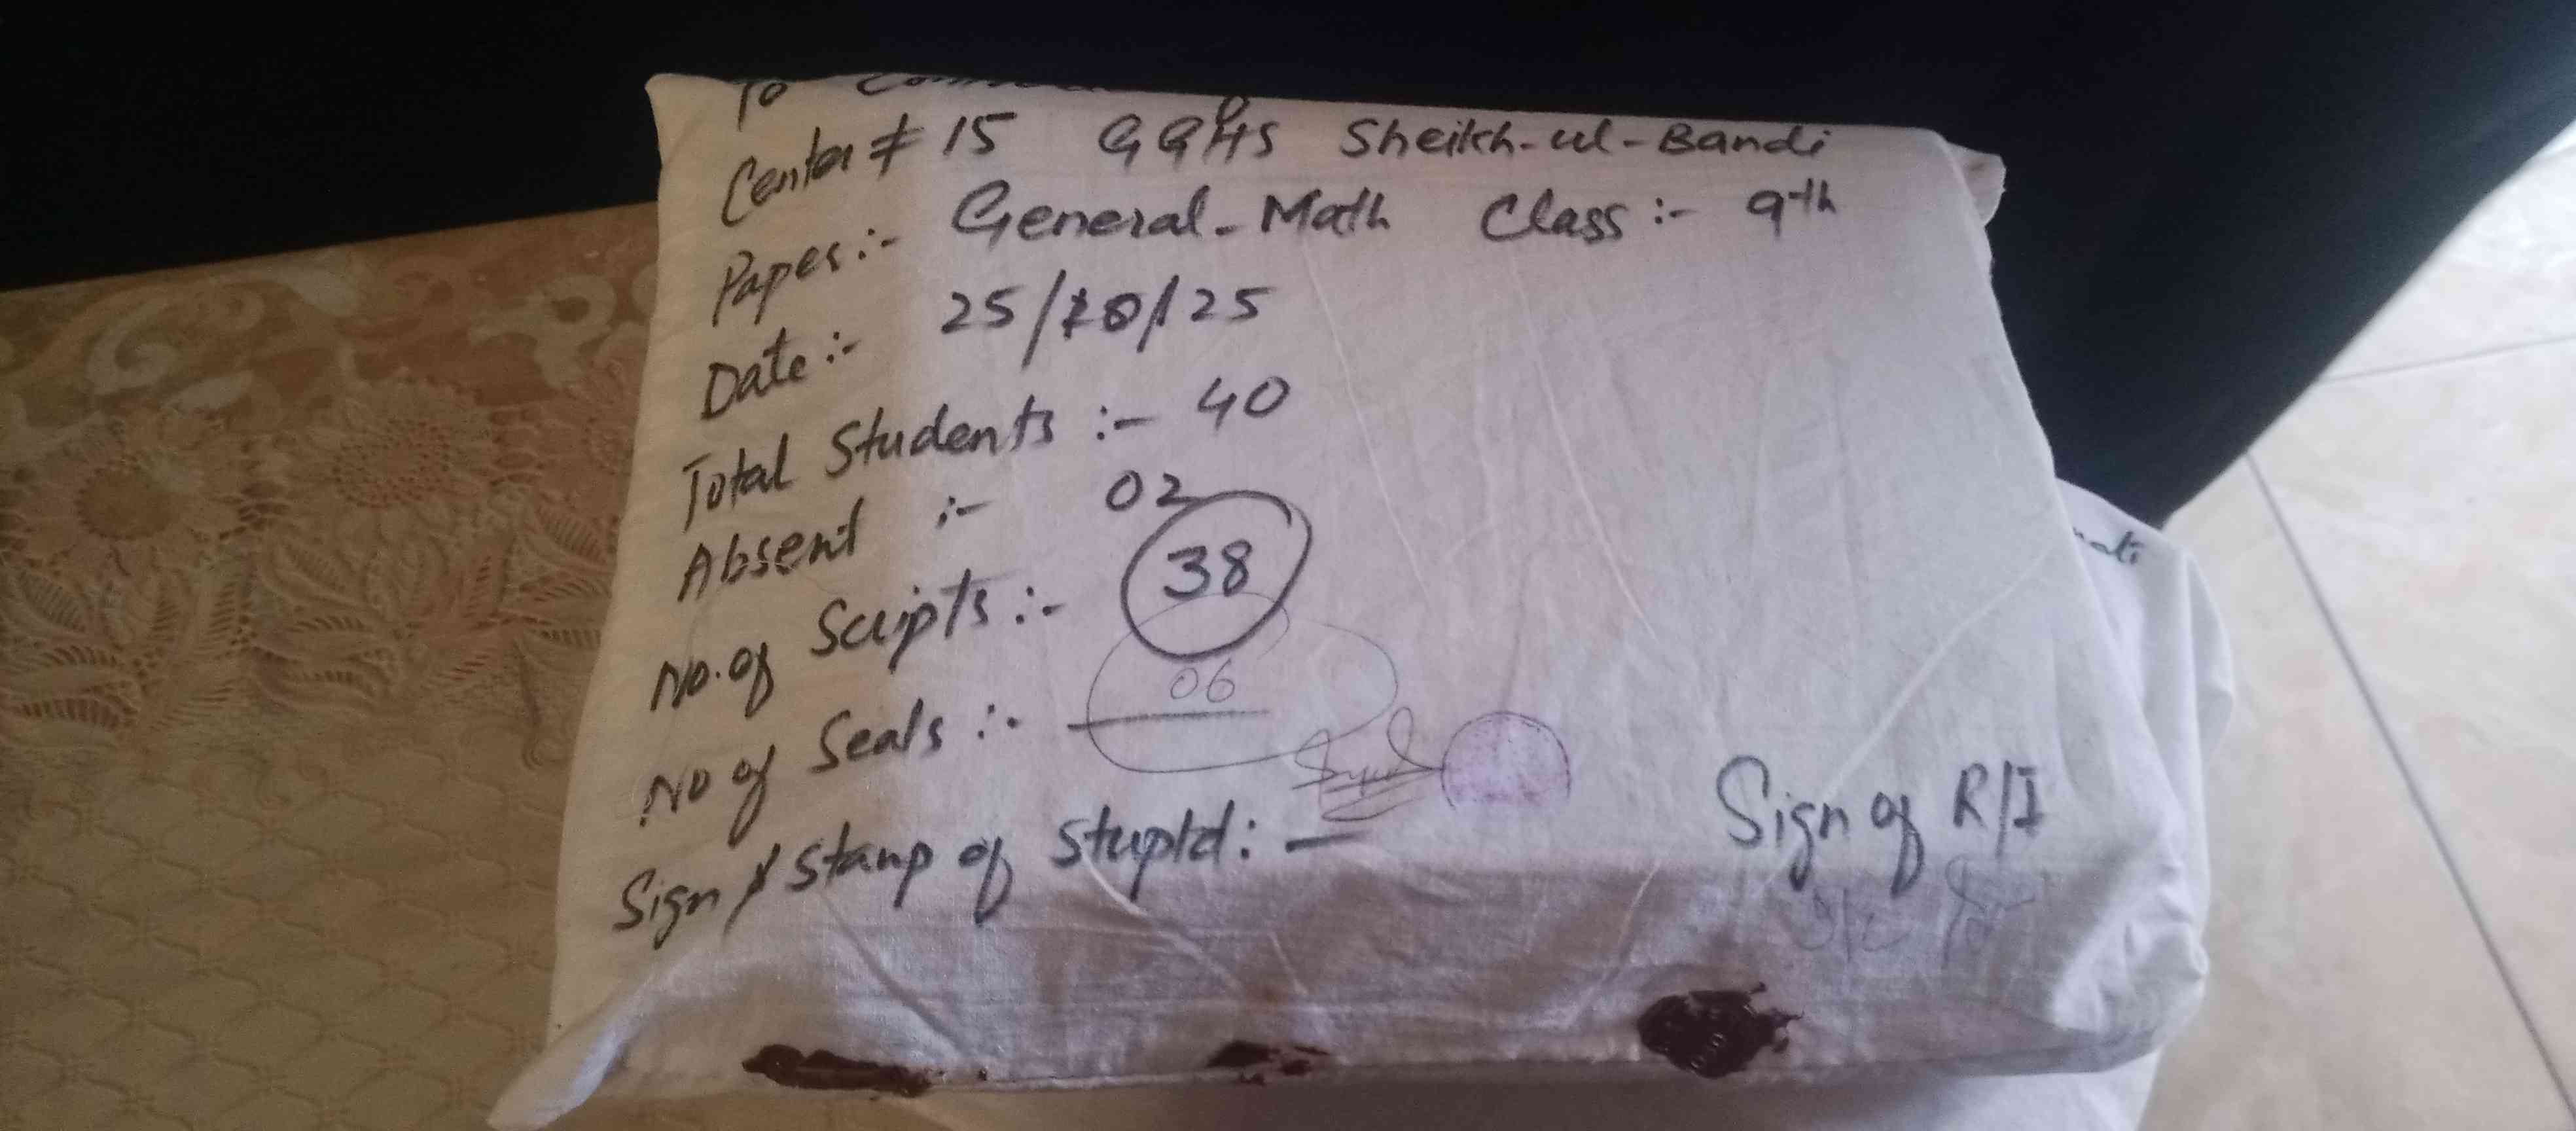 To
Center # 15 GGHS Sheikh-ul-Bandi
Paper:- General-Math Class:- 9th
Date:- 25/10/25
Total Students :- 40
Absent :- 02
No. of Scripts :- 38
No of Seals :- 06
Sign & Stamp of Stuptd: -
Sign of R/I